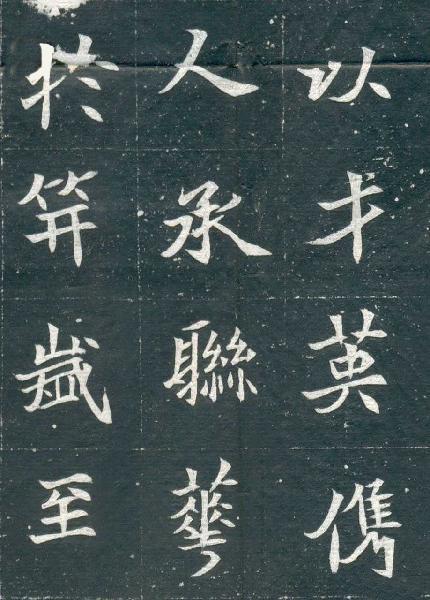 以才英儁
人承聯華
於笄歲至